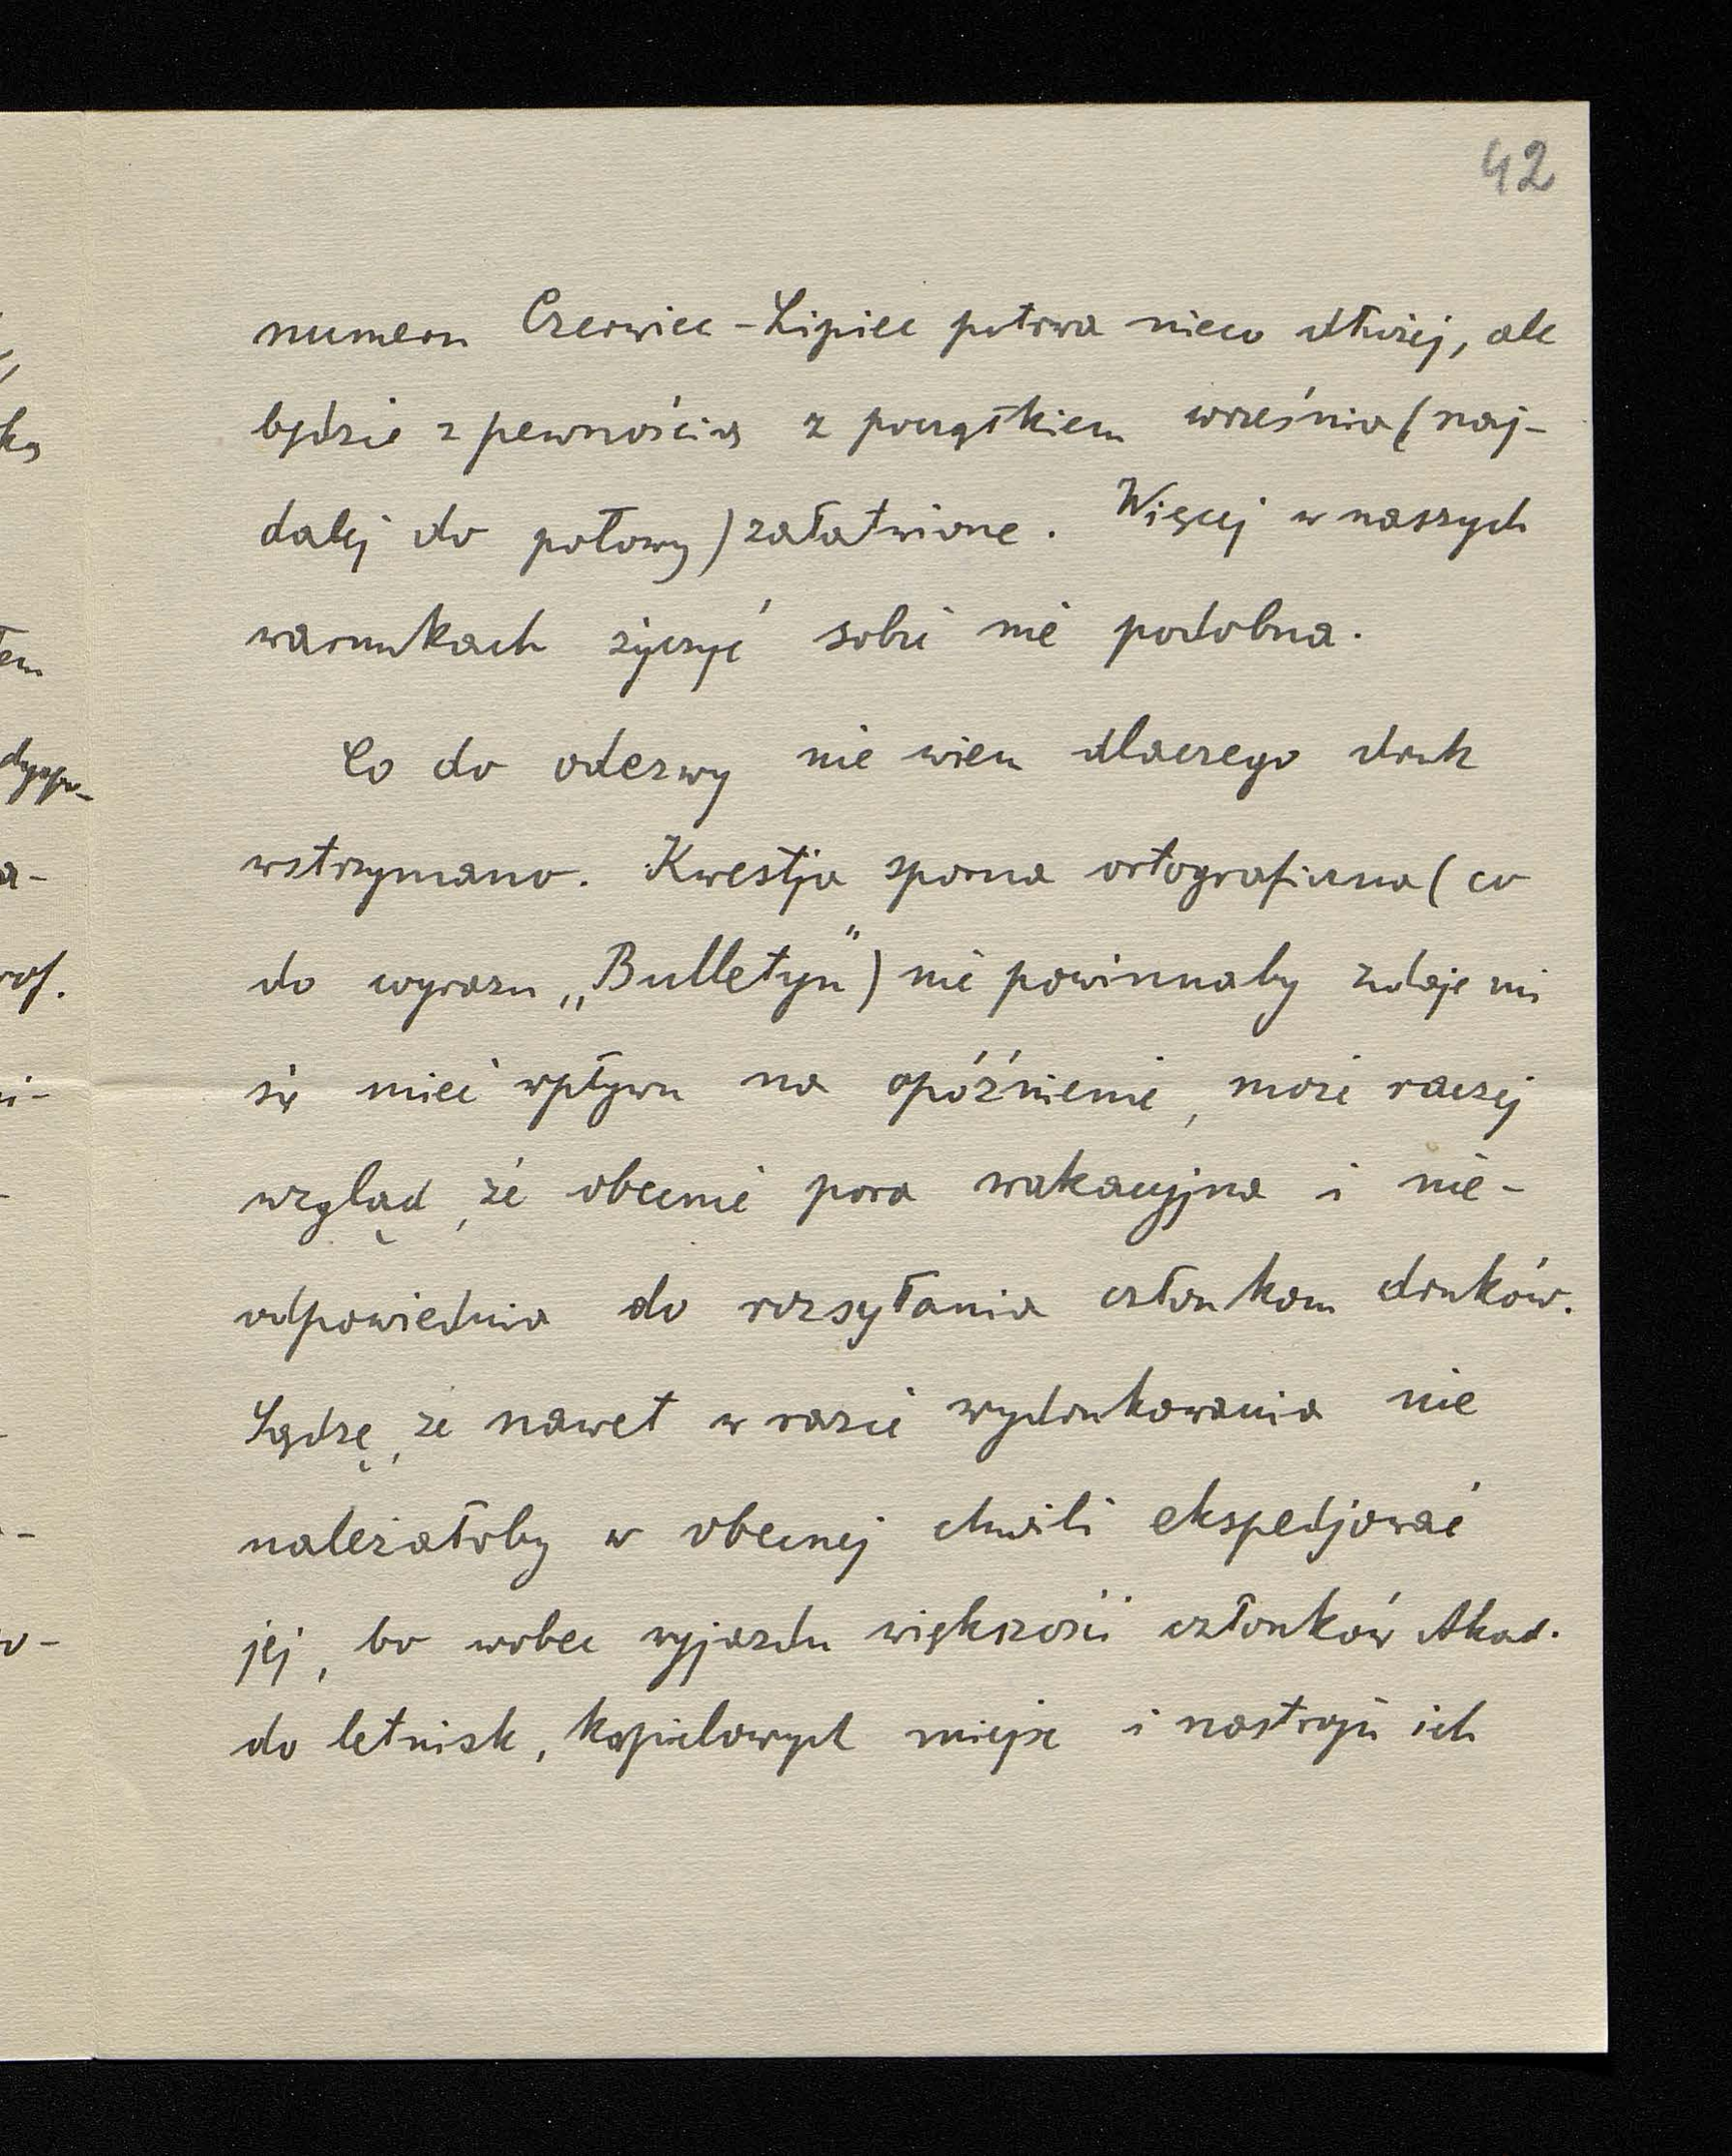 42
numeru Czerwiec - Lipiec potrwa nieco dłużej, ale
będzie z pewnością z początkiem września (naj-
dalej do połowy) załatwione. Więcej w naszych
warunkach życzyć sobie nie podobna.
Co do odezwy nie wiem dlaczego druk
wstrzymano. Kwestja sporna ortograficzna (co
do wyrazu „Bulletyn") nie powinnaby zdaje mi
się mieć wpływu na opóźnienie, może raczej
wzgląd, że obecnie pora wakacyjna i nie-
odpowiednia do rozsyłania członkom druków.
Sądzę, że nawet w razie wydrukowania nie
należałoby w obecnej chwili ekspedjować
jej, bo wobec wyjazdu większości członków Akad.
do letnisk, kąpielowych miejsc i nastroju ich